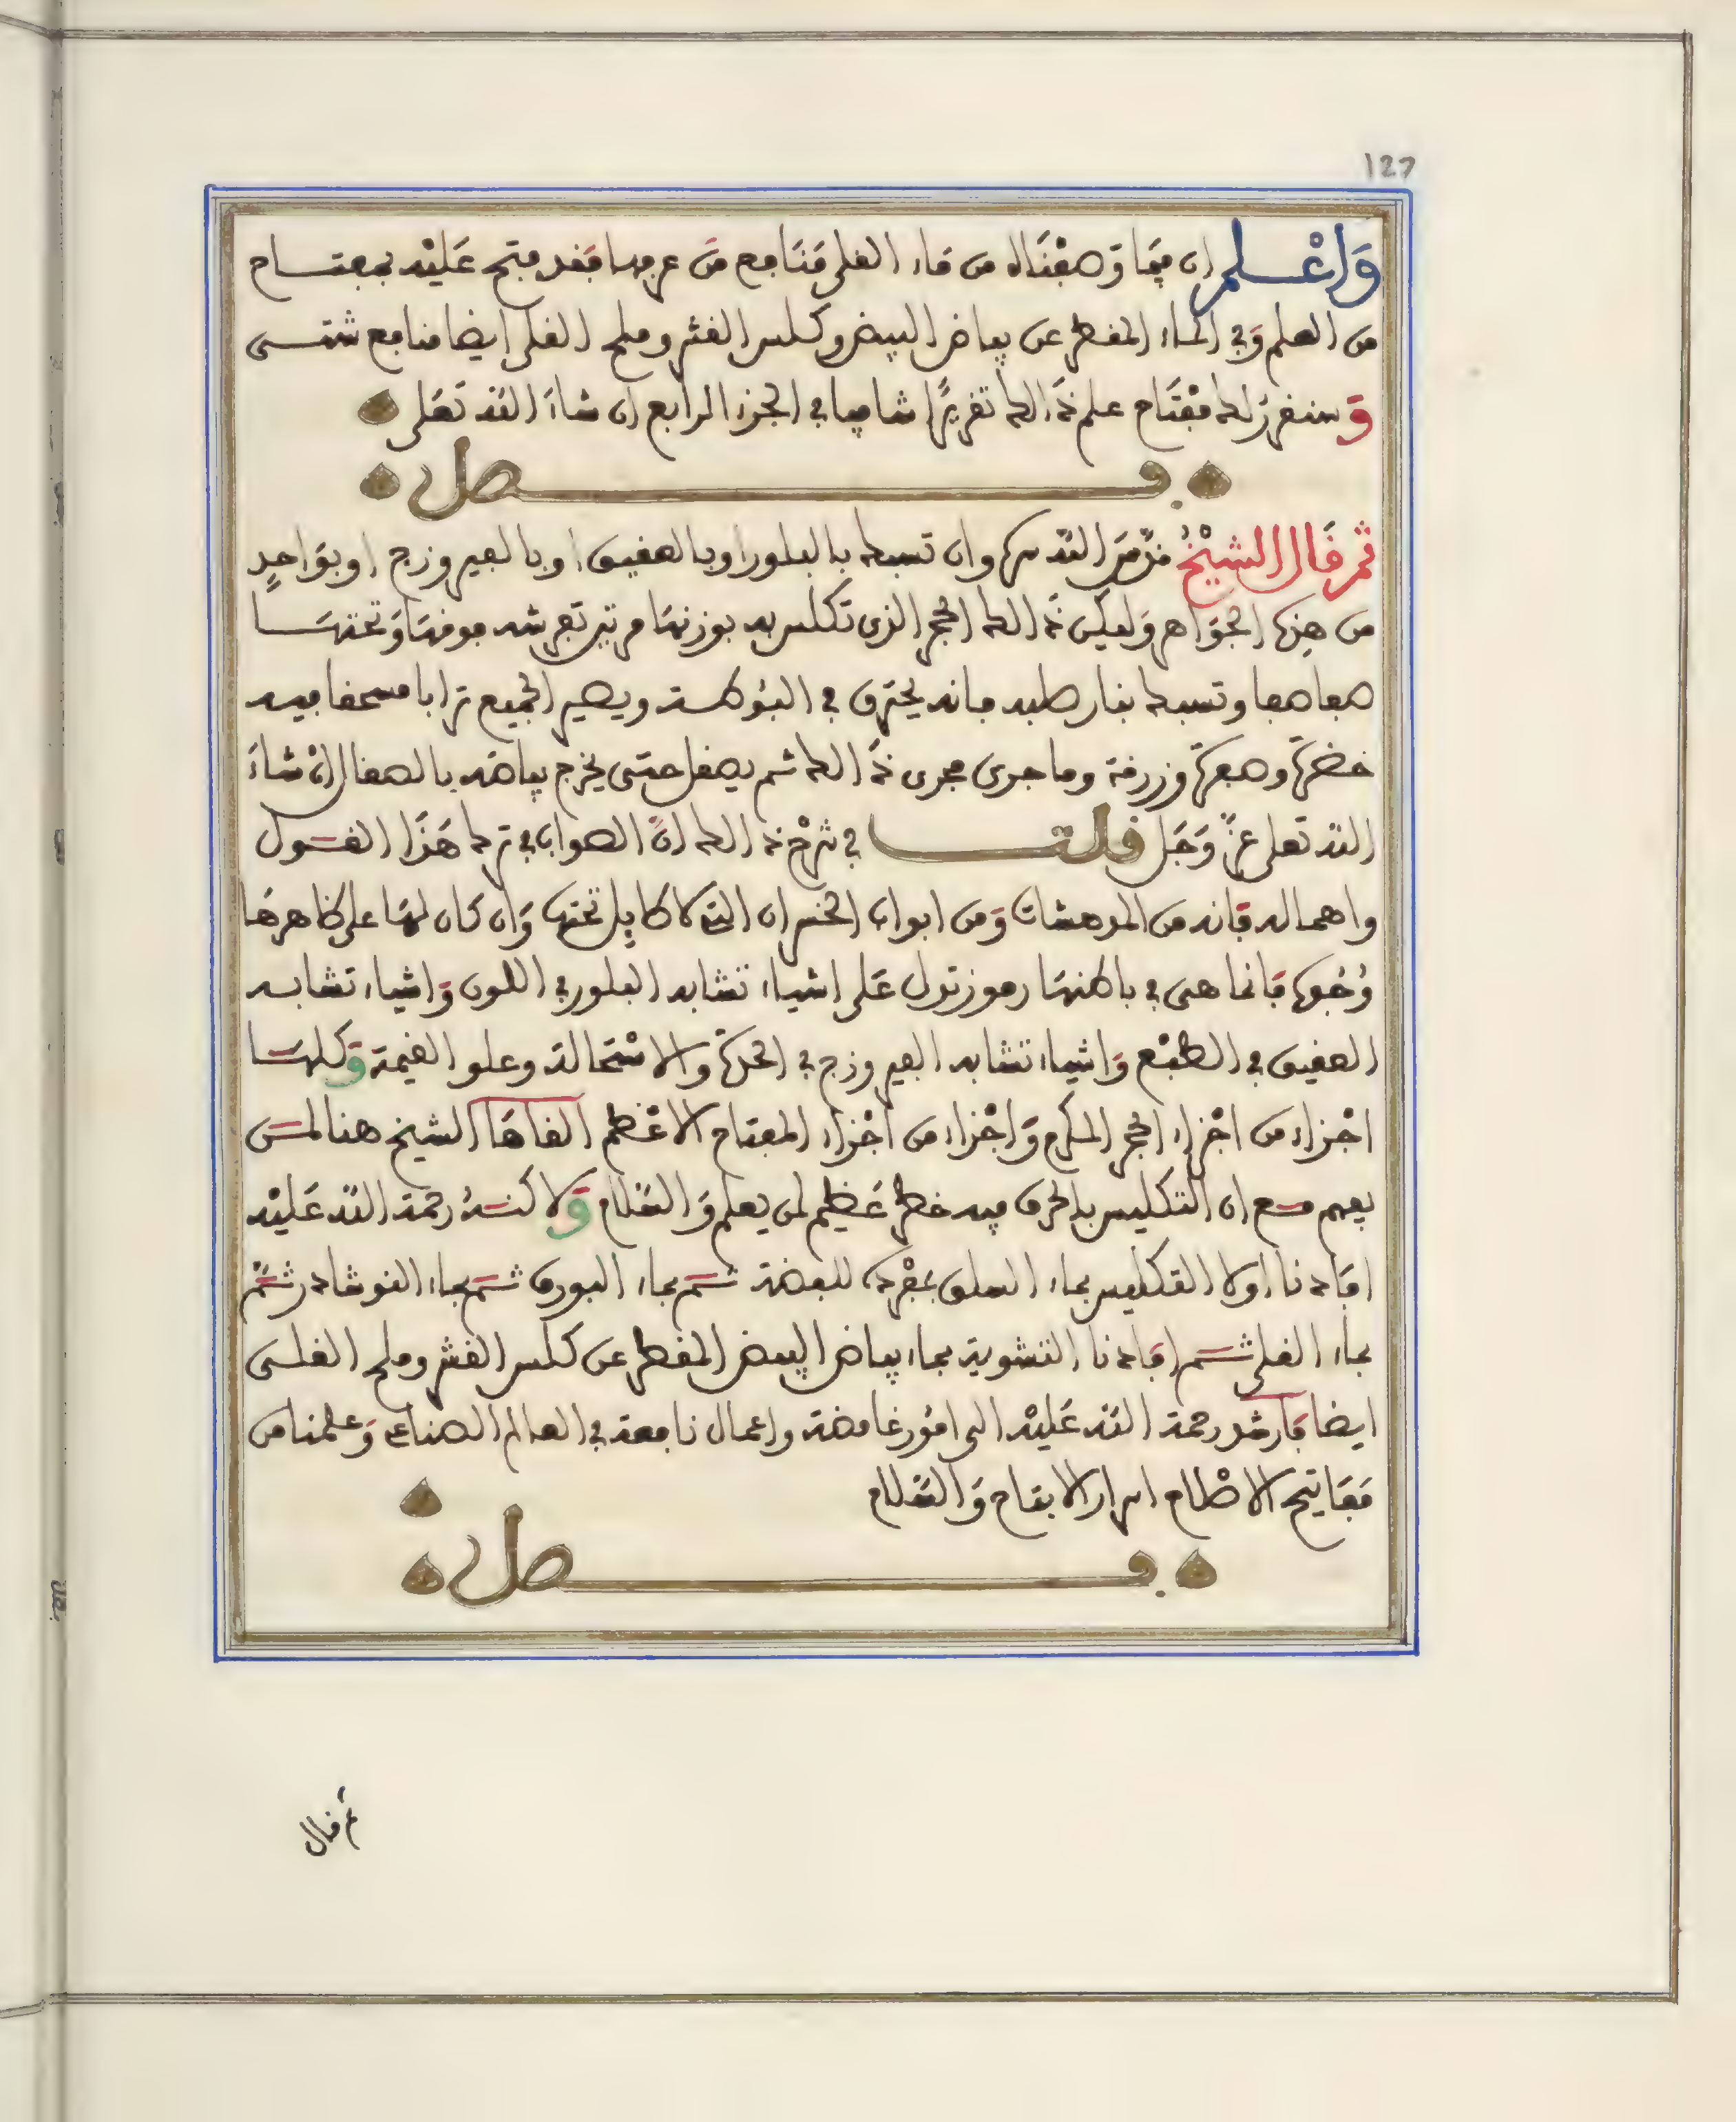 127
وَاعْلم ان فيمَا وَصفْنَاه من مَاء القلى مَنَافع مَن عرفها فَقد فتح عَليْه بمفتاح
من العلم وَفي الماء المقطر عن بياض البيض وكلس القشر وملح القلى ايضا منافع شتى
وَسنقرر لك مفْتَاح علم ذَالك تقريرًا شافيا في الجزء الرابع ان شاءَ الله تعَلى
فصل
ثم قَال الشيْخ قدّسَ الله سره وان تسبك بالبلور او بالعقيق او بالفيروزج او بوَاحدٍ
من هذه الجوَاهر وَليكن ذَالك الحجر الذي تكلس به بوزنهَا مرتين تفرشه فوقهَا وَتحتهَا
صفا صفا وتسبك بنار صلبه فانه يحترق في البوطة ويصير الجميع ترابا منسحقا فيه
خضرة وصفرة وزرقة وما جرى مجرى ذَالك ثم يصقل حتى يخرج بياضه بالصقال انْ شاءَ
الله تعلى عزّ وَجَل قلت في شرْح ذالك انّ الصواب في ترك هَذَا القول
واهماله فانه من المدهشات وَمن ابواب الخسران التي لا طايل تحتها وَان كان لهَا على ظاهرهَا
وُجُوه فَانما هى في باطنهَا رموز تدل عَلى اشياء تشابه البلور في اللون وَاشياء تشابه
العقيق في الطبْع وَاشياء تشابه الفيروزج في الحمرة وَالاسْتحالة وعلو القيمة وَكلهَا
اجْزاء من اجْزاء الحجر المكرم وَاجْزاء من اجْزاء المفتاح الاعْظم القاهَا الشيخ هنا لمن
يفهم مع ان التكليس بالحرق فيه خطر عَظيم لمن يعلم وَالسَّلام وَلاكنهُ رحمة الله عَليْه
افَادنا اولا التكليس بماء السلق بمفْرده للفضة ثم بماء البورق ثم بماء النوشادر ثمّ
بماء القلى ثم افَادنا التشوية بماء بياض البيض المقطر عن كلس القشر وملح القلى
ايضا فَارشد رحمة الله عَليْه الى امُور غامضة واعمال نافعة في العالم الصناعى وَعلمنا من
مَفَاتيح الاحْكام اسرار الايقاح وَالسَّلام
فصل
ثم قال